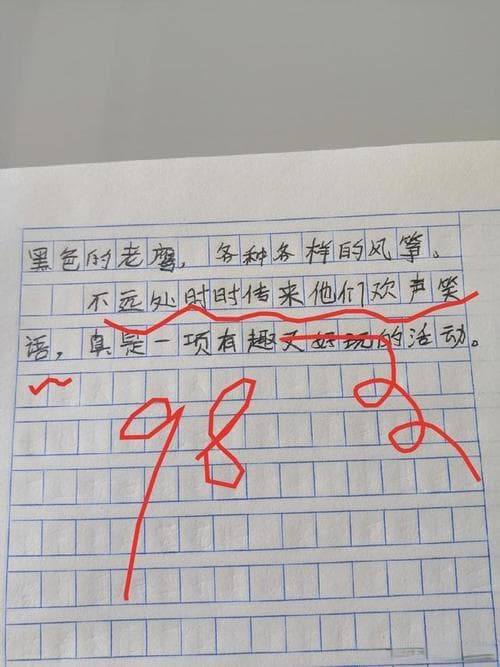 黑色的老鹰，各种各样的风筝。
不远处时时传来他们欢声笑
语，真是一项有趣又好玩的活动。
98